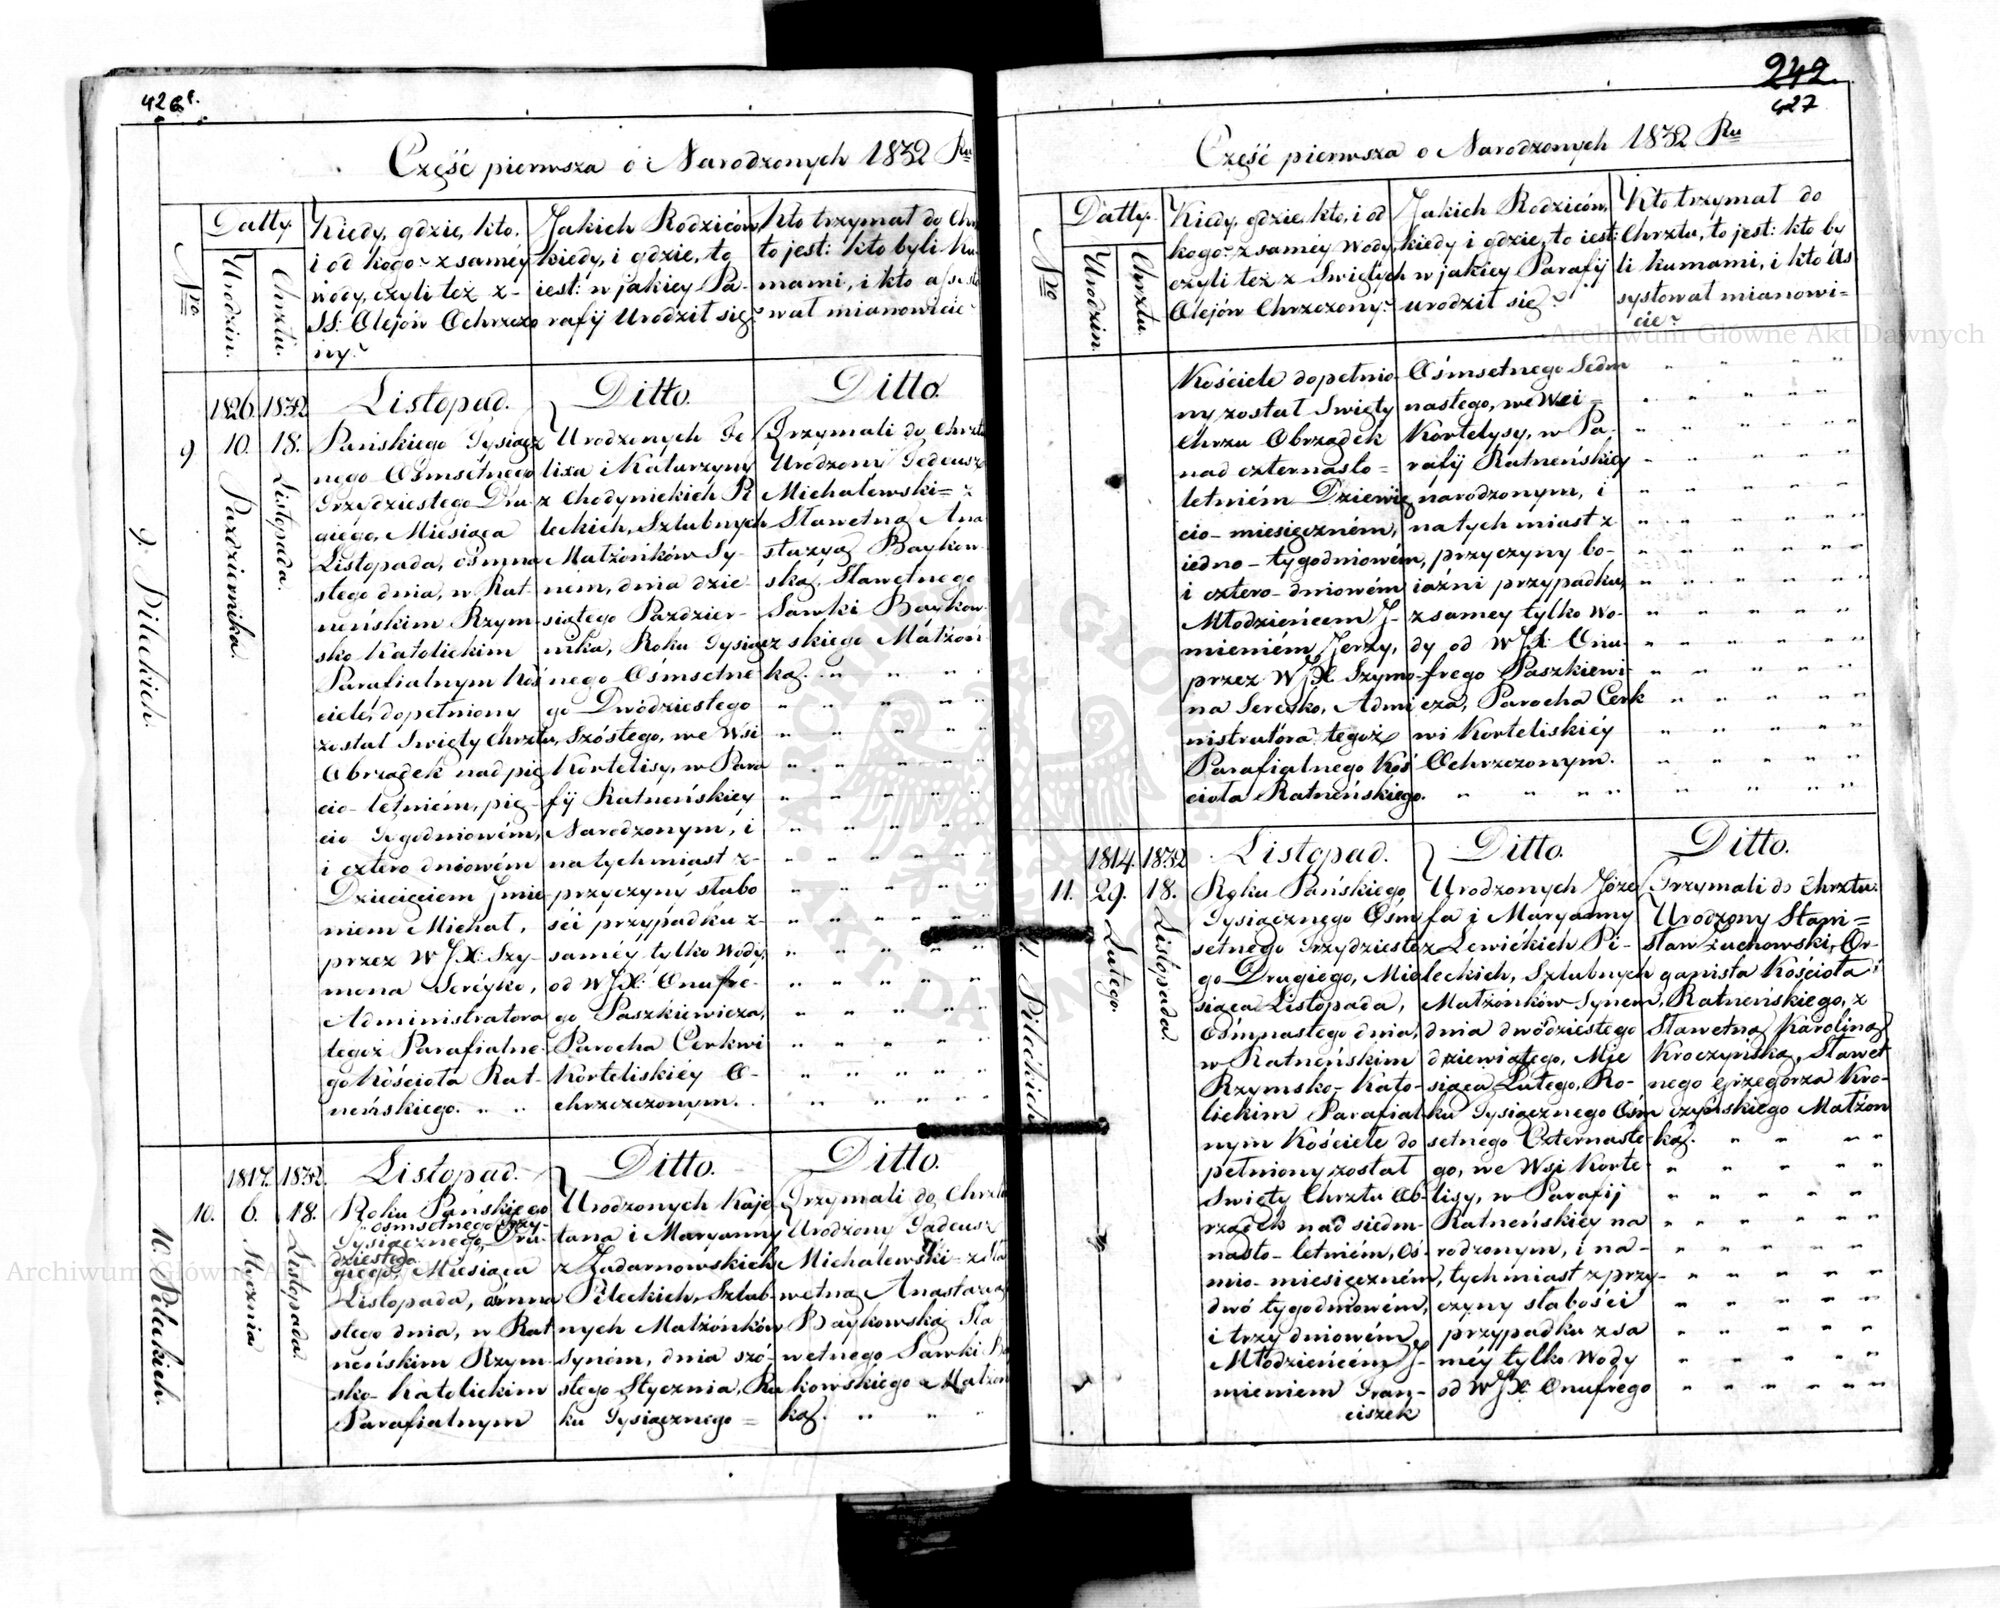 426
Część pierwsza o Narodzonych 1832 Ru
Nro
Datty.
Urodzin.
Chrztu.
Kiedy, gdzie, kto,
i od kogo? z saméy
wody, czyli też z-
SS: Olejów Ochrzczo
ny?
Jakich Rodziców,
kiedy, i gdzie, to
iest: w jakiey Pa-
rafij Urodził się?
Kto trzymał do Chrz
to jest: kto byli Ku
mami, i kto assysto
wał mianowicie?
9. Pileckich.
9
1826.
10.
Października.
1832
18.
Listopada.
Listopad.
Pańskiego Tysiącz
nego Ośmsetnego
Trzydziestego Dru
giego, Miesiąca
Listopada, ośmna
stego dnia, w Rat
neńskim Rzym-
sko Katolickim
Parafialnym Koś
ciele, dopełniony
został Swięty Chrztu,
Obrządek nad pię
cio-letniém, pię-
cio Tygodniowém,
i cztero dniowém
Dziecięciem Imie
niem Michał,
przez WJX: Szy-
mona Sereyko,
Administratora
tegoż Parafialne-
go Kościoła Rat-
neńskiego. " "
Ditto.
Urodzonych Fe
lixa i Katarzyny
z Chodynickich Pi
leckich, Szlubnych
Małżonków Sy-
nem, dnia dzie-
siątego Paździer-
nika, Roku Tysiącz
nego Ośmsetne
go Dwódziestego
Szóstego, we Wsi
Kortelisy, w Para
fij Ratneńskiey
Narodzonym, i
natychmiast z-
przyczyny słabo
ści przypadku z-
saméy tylko Wody,
od WJX: Onufre-
go Paszkiewicza,
Parocha Cerkwi
Korteliskiéy O-
chrzczonym.
Ditto
Trzymali do Chrztu
Urodzony Tedeusz
Michalewski= z
Sławetną Ana
stazyą Baykow
ską, Sławetnego
Sawki Baykow
skiego Małżon
ką. " " " "
10. Pileckich.
10.
1817.
6.
Stycznia
1832.
18.
Listopada.
Listopad.
Roku Pańskiego
" ośmsetnego Trzy-
Tysiącznego, Dru-
dziestego
giego, Miesiąca
Listopada, ośmna
stego dnia, w Rat
neńskim Rzym-
sko-Katolickim
Parafialnym
Ditto.
Urodzonych Kaje
tana i Maryanny
z Zadarnowskich
Pileckich, Szlub-
nych Małżonków
Synem, dnia szó-
stego Stycznia, Ro
ku Tysiącznego =
Ditto.
Trzymali do Chrztu
Urodzony Tadeusz
Michalewski- z Sła
wetną Anastazyą
Baykowską Sła
wetnego Sawki Bay
kowskiego Małżon
ką. " " "
242.
427
Część pierwsza o Narodzonych 1832 Ru
Nro
Datty.
Urodzin.
Chrztu.
Kiedy, gdzie, kto, i od
kogo? z saméy Wody,
czyli też z Swiętych
Olejów Chrzczony?
Jakich Rodziców,
kiedy i gdzie, to iest:
w jakiey Parafij
urodził się?
Kto trzymał do
Chrztu, to jest: kto by
li kumami, i kto As
systował mianowi=
cie?
Kościele dopełnio-
ny został Swięty
Chrzu Obrządek
nad czternasto=
letniém Dziewię
cio-miesięczném,
iedno-tygodniowém,
i cztero-dniowém
Młodzieńcem I-
mieniém Jerzy,
przez WJX Szymo-
na Sereyko, Admi
nistratora tegoż
Parafialnego Koś
cioła Ratneńskiego.
Ośmsetnego Sedm
nastego, we Wsi=
Kortelysy, w Pa-
rafij Ratneńskiey
narodzonym, i
natychmiast z
przyczyny bo-
iaźni przypadku,
z samey tylko Wo-
dy od WJX Onu-
frego Paszkiewi-
cza, Parocha Cerk
wi Korteliskiéy
Ochrzczonym.
11. Pileckich.
11.
1814.
29.
Lutego.
1832
18.
Listopada.
Listopad.
Roku Pańskiego,
Tysiącznego Ośm
setnego Trzydzieste
go Drugiego, Mie
siąca Listopada,
Ośmnastego dnia,
w Ratneńskim
Rzymsko-Kato-
lickim Parafial
nym Kościele do
pełniony został
Swięty Chrztu Ob-
rządek nad siedm-
nasto-letniém, Oś-
mio-miesięczném,
dwó tygodniowém,
i trzy dniowém
Młodzieńcém I-
mieniem Fran-
ciszek
Ditto.
Urodzonych Józe
fa i Maryanny
z Lewickich Pi-
leckich, Szlubnych
Małżonków Synem,
dnia dwódziestego
dziewiątego, Mie
siąca Lutego, Ro-
ku Tysiącznego Ośm
setnego Czternaste-
go, we Wsi Korte-
lisy, w Parafij
Ratneńskiey na
rodzonym, i na-
tychmiast z przy-
czyny słabości
przypadku z sa
méy tylko Wody
od WJX: Onufrego
Ditto.
Trzymali do Chrztu:
Urodzony Stani=
sław Żuchowski, Or-
ganista Kościoła
Ratneńskiego, z
Sławetną Karoliną
Kroczyńską, Sławet
nego Grzegorza Kro-
czyńskiego Małżon
ką. " " " "
Archiwum Główne Akt Dawnych